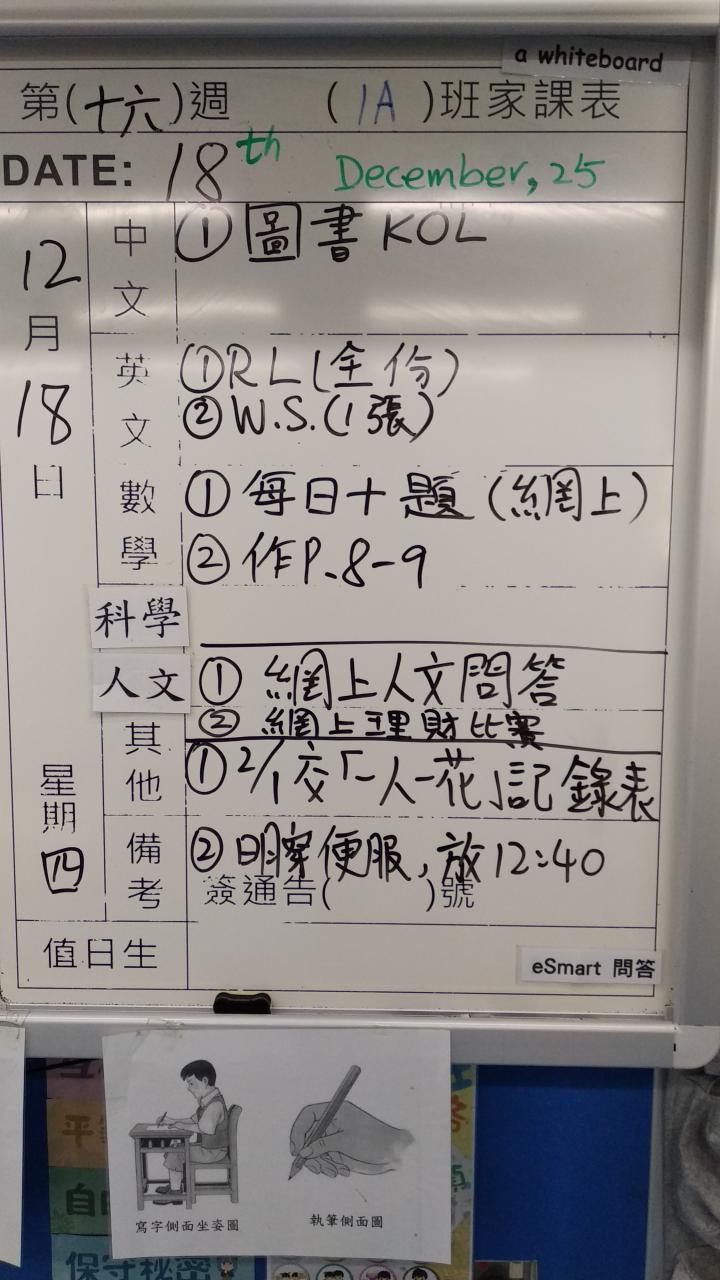 a whiteboard
第(十六)週 (1A)班家課表
DATE: 18th December, 25
12月18日
星期四
中文
① 圖書 KOL
英文
① R L (全份)
② W.S. (1張)
數學
① 每日十題 (網上)
② 作P.8-9
科學
人文
① 網上人文問答
② 網上理財比賽
其他
① 2/1交「一人一花」記錄表
備考
② 明穿便服, 放12:40
簽通告( )號
值日生
eSmart 問答
寫字側面坐姿圖
執筆側面圖
保守秘密